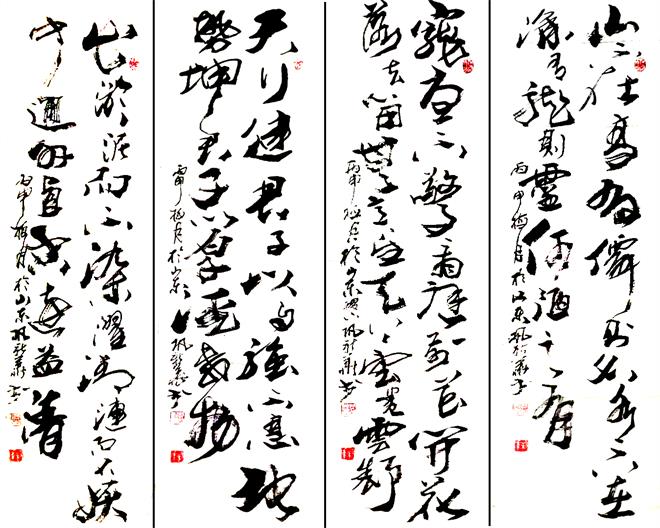 山不在高有僊則名水不在
深有龍則靈何陋之有
丙申梅月於山东
寵辱不驚看庭前花開花
落去留無意望天外雲卷雲舒
丙申梅月於山东
天行健君子以自強不息地
勢坤君子以厚德載物
丙申梅月於山东
出淤泥而不染濯清漣而不妖
中通外直香遠益清
丙申梅月於山东